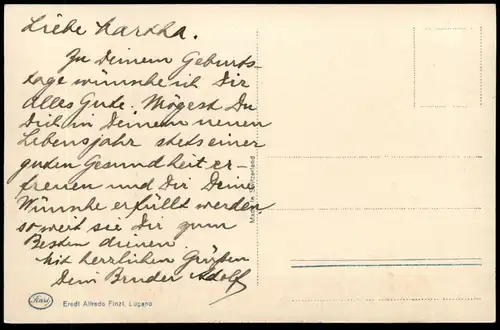 Liebe Martha.
Zu Deinem Geburts-
tage wünsche ich Dir
alles Gute. Mögest Du
Dich in Deinem neuen
Lebensjahr stets einer
guten Gesundheit er-
freuen und Dir Deine
Wünsche erfüllt werden
so weit sie Dir zum
Besten dienen.
Mit herzlichen Grüßen
Dein Bruder Adolf
Eredi Alfredo Finzi, Lugano
Made in Switzerland